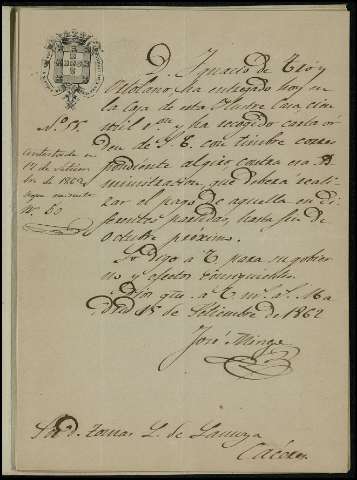 D. Ignacio de Tró y
Ortolano, ha entregado hoy en
la Caja de esta Ilustre Casa cien
mil r.on y ha recogido carta or
den de T. E. con timbre corres
pondiente al giro contra esa Ad
ministracion, que deberá reali-
zar el pago de aquella en di-
ferentes partidas, hasta fin de
Octubre próximo.
Lo digo a E. para su gobier
no y efectos consiguientes.
Dios gue. a E. m.s a.s Ma
drid 15 de Setiembre de 1862
José Minge
N.o 55.
Contestada en
17 de Setiem
bre de 1862
segun minuta
N.o 50
Sor. D. Tomas L. de
Cáceres